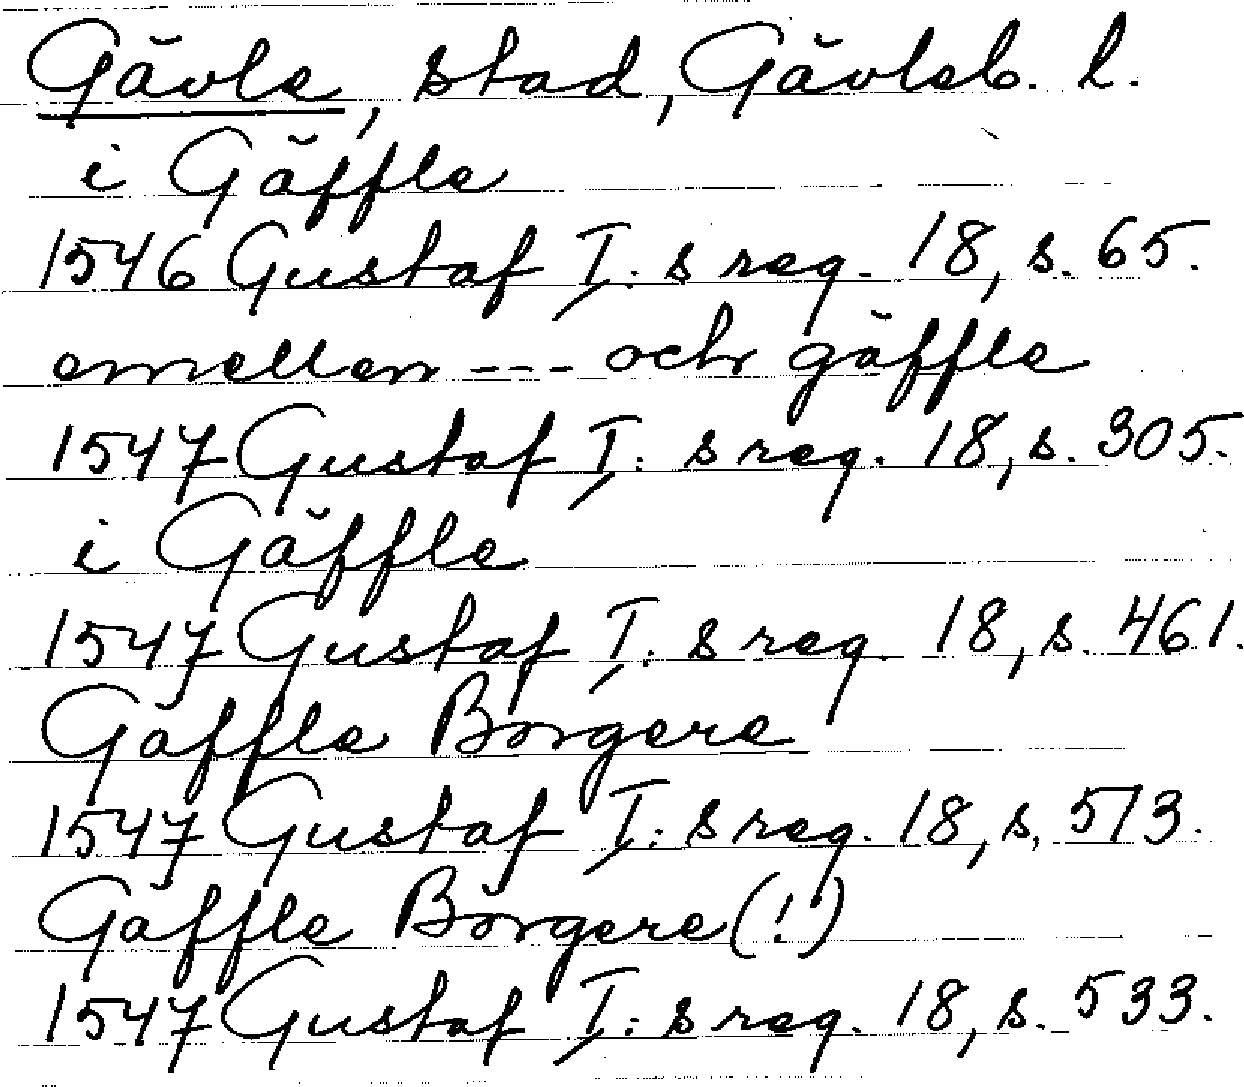 Gävle, stad, Gävleb. l.
i Gäffle
1546 Gustaf I:s reg. 18, s. 65.
emellen --- och gäffle
1547 Gustaf I:s reg. 18, s. 305.
i Gäffle
1547 Gustaf I:s reg. 18, s. 461.
Gäffle Börgere
1547 Gustaf I:s reg. 18, s. 513.
Gäffle Börgere (!)
1547 Gustaf I:s reg. 18, s. 533.